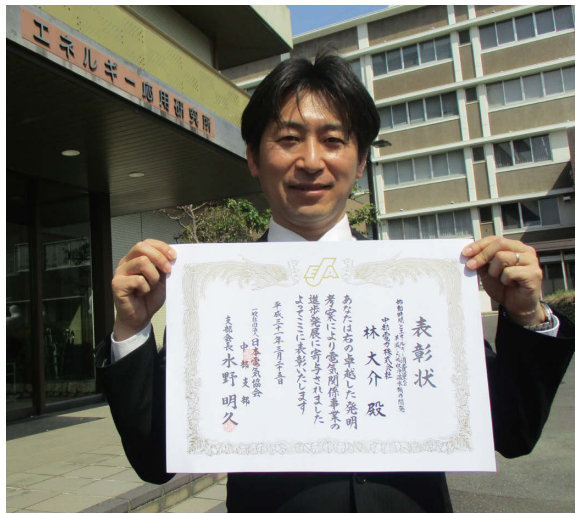 エネルギー応用研究所
表彰状
中部電力株式会社
林 大介 殿
あなたは右の卓越した発明
考案により電気関係事業の
進歩発展に寄与されました
よってここに表彰いたします
平成三十一年三月二十五日
一般社団法人日本電気協会
中部支部
支部会長 水野明久